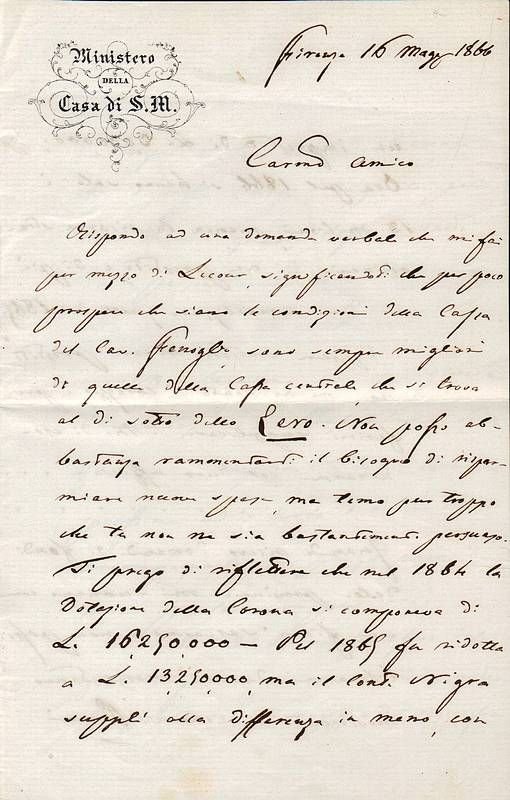 Ministero
DELLA
Casa di S. M.
Firenze 16 Magg 1866
Carmo Amico
Rispondo ad una domanda verbale che mi fai
per mezzo di significandoti che per poco
prospere che siano le condizioni della Cassa
del Cav. sono sempre migliori
di quelle della Cassa centrale che si trova
al di sotto dello Zero. Non posso ab-
bastanza rammentarti il bisogno di rispar-
miare nuove spese, ma temo pur troppo
che tu non ne sia bastantemente persuaso.
Ti prego di riflettere che nel 1864 la
Dotazione della Corona si componeva di
L. 16250,000 — Pel 1865 fu ridotta
a L. 13250000, ma il Cont. Nigra
supplì alla differenza in meno, con